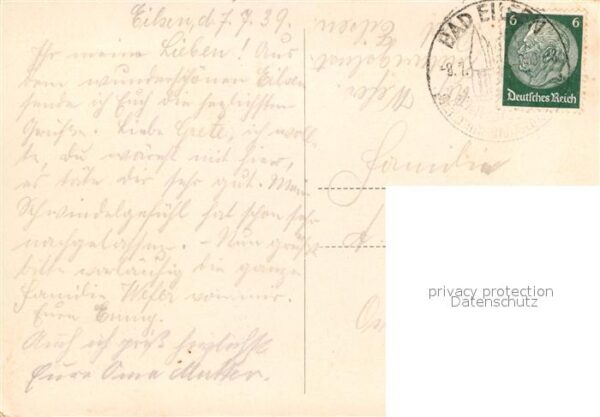 Eilsen, d. 7.7.39.
Ihr meine Lieben! Aus
dem wunderschönen Eilsen
sende ich Euch die herzlichsten
Grüße. Liebe Grete, ich woll-
te, du wärest mit hier,
es täte dir sehr gut. Mein
Schwindelgefühl hat schon sehr
nachgelassen. – Nun grüßt
bitte vorläufig die ganze
Familie Wefer von mir.
Eure Emmy.
Auch ich grüße herzlichst
Eure Oma Mutter.
Familie
BAD EILSEN
-8.7.
6 6
Deutsches Reich
privacy protection
Datenschutz